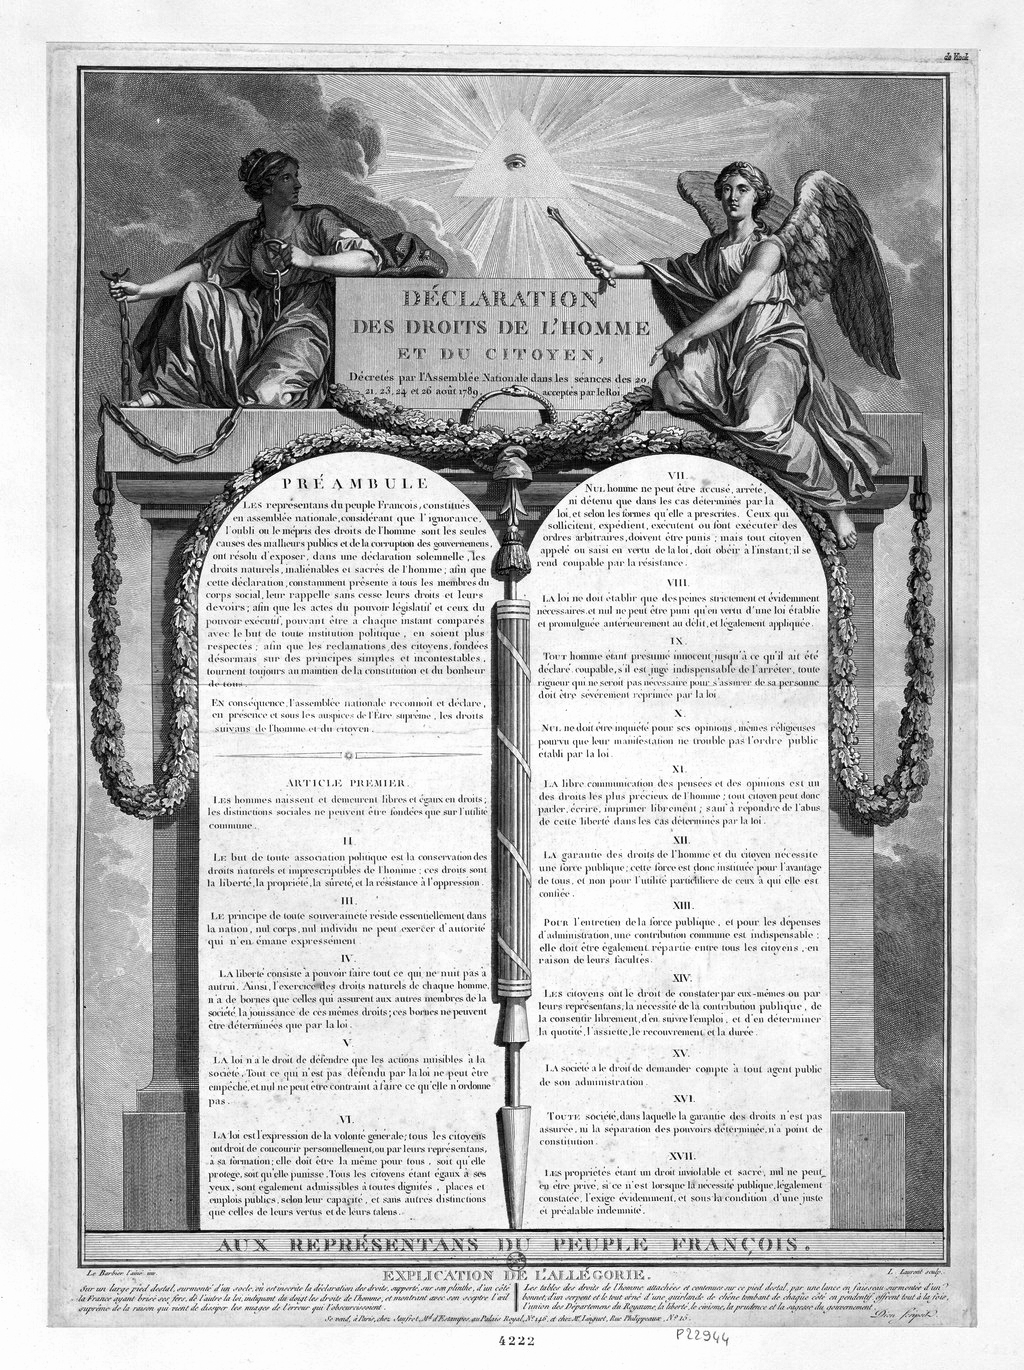 de Vinck
DÉCLARATION
DES DROITS DE L'HOMME
ET DU CITOYEN,
Décretés par l'Assemblée Nationale dans les séances des 20,
21, 23, 24 et 26 août 1789, acceptés par le Roi
PRÉAMBULE
LES représentans du peuple Francois, constitués
en assemblée nationale, considérant que l'ignorance,
l'oubli ou le mépris des droits de l'homme sont les seules
causes des malheurs publics et de la corruption des gouvernemens
ont résolu d'exposer, dans une déclaration solemnelle, les
droits naturels, inaliénables et sacrés de l'homme; afin que
cette déclaration, constamment présente à tous les membres du
corps social, leur rappelle sans cesse leurs droits et leurs
devoirs; afin que les actes du pouvoir législatif et ceux du
pouvoir exécutif, pouvant être à chaque instant comparés
avec le but de toute institution politique, en soient plus
respectés; afin que les reclamations des citoyens, fondées
désormais sur des principes simples et incontestables,
tournent toujours au maintien de la constitution et du bonheur
de tous.
EN conséquence, l'assemblée nationale reconnoit et déclare,
en présence et sous les auspices de l'Être suprême, les droits
suivans de l'homme et du citoyen.
ARTICLE PREMIER.
LES hommes naissent et demeurent libres et égaux en droits;
les distinctions sociales ne peuvent être fondées que sur l'utilité
commune.
II.
LE but de toute association politique est la conservation des
droits naturels et imprescriptibles de l'homme; ces droits sont
la liberté, la propriété, la sureté, et la résistance à l'oppression.
III.
LE principe de toute souveraineté réside essentiellement dans
la nation, nul corps, nul individu ne peut exercer d'autorité
qui n'en émane expressément.
IV.
LA liberté consiste à pouvoir faire tout ce qui ne nuit pas à
autrui. Ainsi, l'exercice des droits naturels de chaque homme,
n'a de bornes que celles qui assurent aux autres membres de la
société la jouissance de ces mêmes droits; ces bornes ne peuvent
être déterminées que par la loi.
V.
LA loi n'a le droit de défendre que les actions nuisibles à la
société. Tout ce qui n'est pas défendu par la loi ne peut être
empêché, et nul ne peut être contraint à faire ce qu'elle n'ordonne
pas.
VI.
LA loi est l'expression de la volonté générale; tous les citoyens
ont droit de concourir personnellement, ou par leurs représentans,
à sa formation; elle doit être la même pour tous, soit qu'elle
protege, soit qu'elle punisse. Tous les citoyens étant égaux à ses
yeux, sont également admissibles à toutes dignités, places et
emplois publics, selon leur capacité, et sans autres distinctions
que celles de leurs vertus et de leurs talens.
VII.
NUL homme ne peut être accusé, arrêté,
ni détenu que dans les cas déterminés par la
loi, et selon les formes qu'elle a prescrites. Ceux qui
sollicitent, expédient, exécutent ou font exécuter des
ordres arbitraires, doivent être punis; mais tout citoyen
appelé ou saisi en vertu de la loi, doit obéir à l'instant; il se
rend coupable par la résistance.
VIII.
LA loi ne doit établir que des peines strictement et évidemment
nécessaires, et nul ne peut être puni qu'en vertu d'une loi établie
et promulguée antérieurement au délit, et légalement appliquée.
IX.
TOUT homme étant présumé innocent jusqu'à ce qu'il ait été
déclaré coupable, s'il est jugé indispensable de l'arrêter, toute
rigueur qui ne seroit pas nécessaire pour s'assurer de sa personne
doit être sévèrement réprimée par la loi.
X.
NUL ne doit être inquiété pour ses opinions, mêmes religieuses
pourvu que leur manifestation ne trouble pas l'ordre public
établi par la loi.
XI.
LA libre communication des pensées et des opinions est un
des droits les plus précieux de l'homme; tout citoyen peut donc
parler, écrire, imprimer librement; sauf à répondre de l'abus
de cette liberté dans les cas déterminés par la loi.
XII.
LA garantie des droits de l'homme et du citoyen nécessite
une force publique; cette force est donc instituée pour l'avantage
de tous, et non pour l'utilité particuliere de ceux à qui elle est
confiée.
XIII.
POUR l'entretien de la force publique, et pour les dépenses
d'administration, une contribution commune est indispensable;
elle doit être également répartie entre tous les citoyens, en
raison de leurs facultés.
XIV.
LES citoyens ont le droit de constater par eux-mêmes ou par
leurs représentans, la nécessité de la contribution publique, de
la consentir librement, d'en suivre l'emploi, et d'en déterminer
la quotité, l'assiette, le recouvrement et la durée.
XV.
LA société a le droit de demander compte à tout agent public
de son administration.
XVI.
TOUTE société, dans laquelle la garantie des droits n'est pas
assurée, ni la séparation des pouvoirs déterminée, n'a point de
constitution.
XVII.
LES propriétés étant un droit inviolable et sacré, nul ne peut
en être privé, si ce n'est lorsque la nécessité publique, légalement
constatée, l'exige évidemment, et sous la condition d'une juste
et préalable indemnité.
AUX REPRÉSENTANS DU PEUPLE FRANÇOIS.
Le Barbier l'ainé inv.
L. Laurent sculp.
EXPLICATION DE L'ALLÉGORIE.
Sur un large pied destal, surmonté d'un socle, où est inscrite la déclaration des droits, supporté, sur son plinthe, d'un côté
la France ayant brisé ses fers, de l'autre la loi, indiquant du doigt les droits de l'homme, et montrant avec son sceptre l'œil
suprême de la raison qui vient de dissiper les nuages de l'erreur qui l'obscurcissoient.
Les tables des droits de l'homme attachées et contenues sur ce pied destal, par une lance en faisceau surmontée d'un
bonnet, d'un serpent et le tout orné d'une guirlande de chêne tombant de chaque côté en pendentif, offrent tout à la fois,
l'union des Départemens du Royaume, la liberté, le civisme, la prudence et la sagesse du gouvernement.
Dien scripsit
Se vend, à Paris, chez Jaufret, Md. d'Estampes, au Palais Royal, No. 146, et chez Mr. Linguet, Rue Philippeaux, No. 15.
4222
P22944